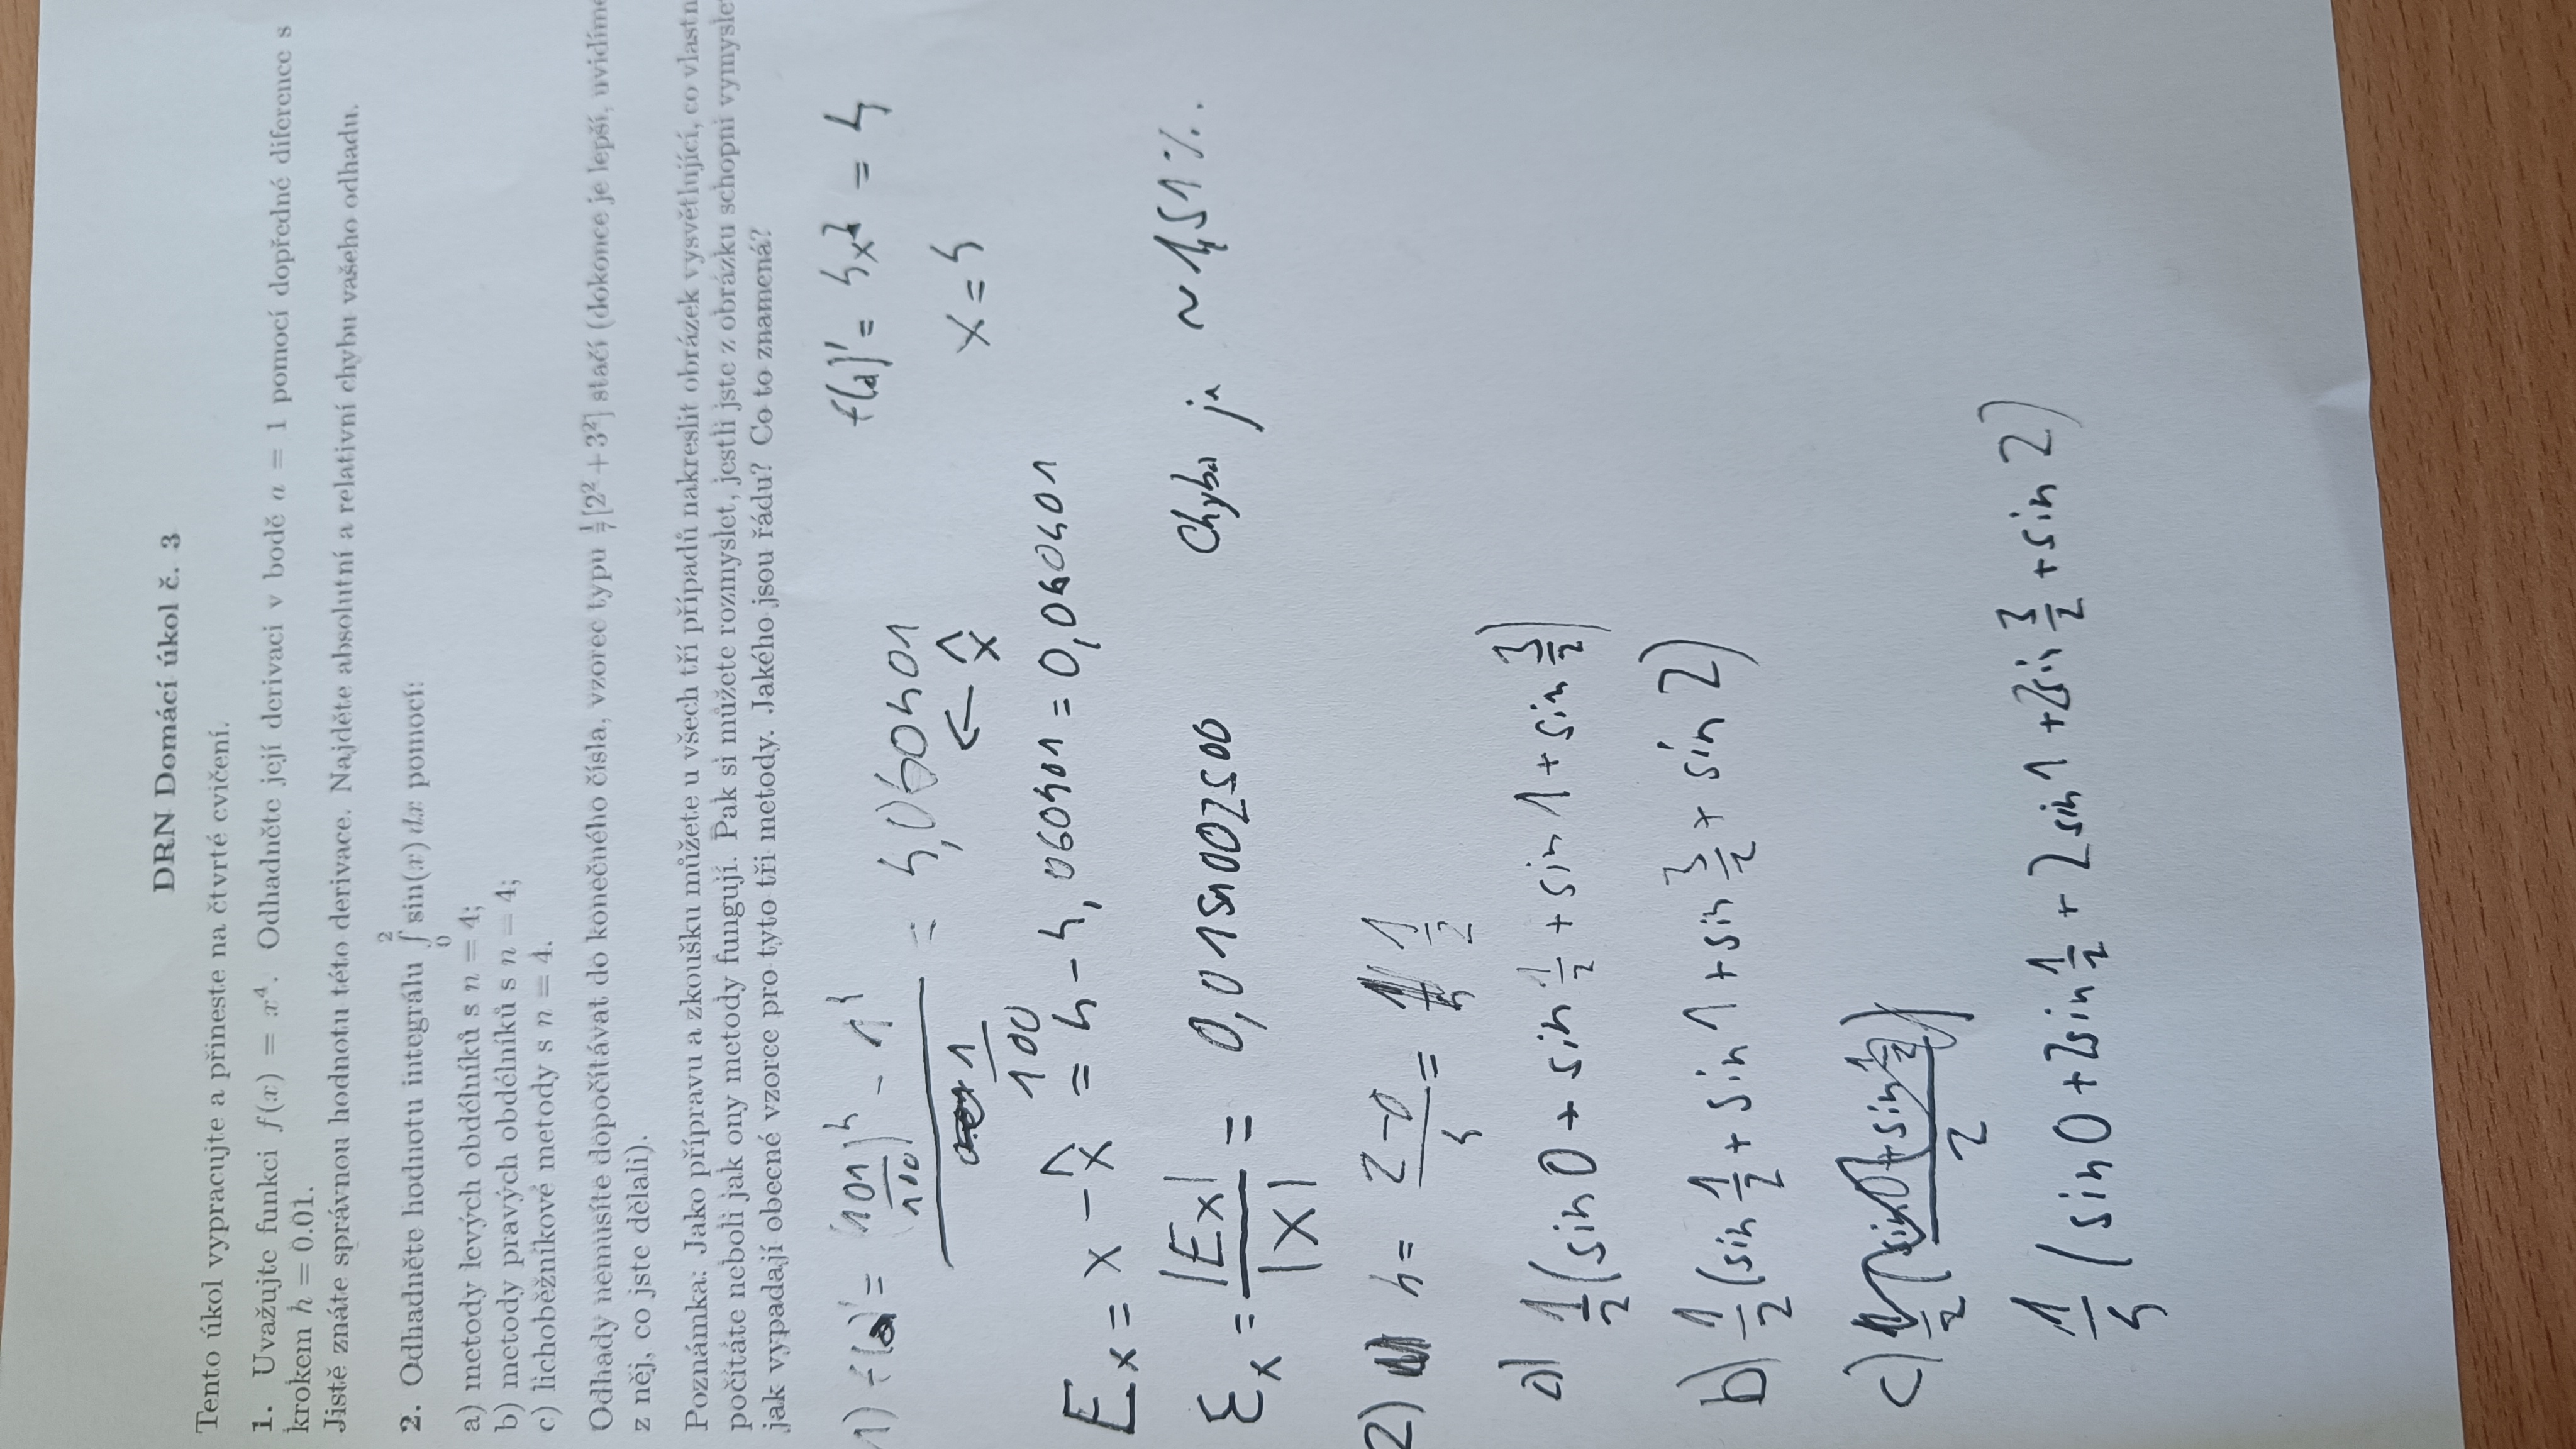 DRN Domácí úkol č. 3
Tento úkol vypracujte a přineste na čtvrté cvičení.
1. Uvažujte funkci f(x) = x⁴. Odhadněte její derivaci v bodě a = 1 pomocí dopředné diference s
krokem h = 0.01.
Jistě znáte správnou hodnotu této derivace. Najděte absolutní a relativní chybu vašeho odhadu.
2. Odhadněte hodnotu integrálu ∫₀² sin(x) dx pomocí:
a) metody levých obdélníků s n = 4;
b) metody pravých obdélníků s n = 4;
c) lichoběžníkové metody s n = 4.
Odhady nemusíte dopočítávat do konečného čísla, vzorec typu [2² + 3²] stačí (dokonce je lepší, uvidíme
z něj, co jste dělali).
Poznámka: Jako přípravu a zkoušku můžete u všech tří případů nakreslit obrázek vysvětlující, co vlastn
počítáte neboli jak ony metody fungují. Pak si můžete rozmyslet, jestli jste z obrázku schopni vymysle
jak vypadají obecné vzorce pro tyto tři metody. Jakého jsou řádu? Co to znamená?
1) f(a)' = ((101/100)⁴ - 1⁴) / (1/100) = 4,060401 f(a)' = 4x³ = 4
← x̂ x = 4
Eₓ = x - x̂ = 4 - 4,060401 = 0,060401
εₓ = |Eₓ|/|x| = 0,015002500 Chyba je ~ 1,51%.
2) h = (2-0)/4 = 1/2
a) 1/2 (sin 0 + sin 1/2 + sin 1 + sin 3/2)
b) 1/2 (sin 1/2 + sin 1 + sin 3/2 + sin 2)
c)
1/4 (sin 0 + 2sin 1/2 + 2 sin 1 + 2sin 3/2 + sin 2)